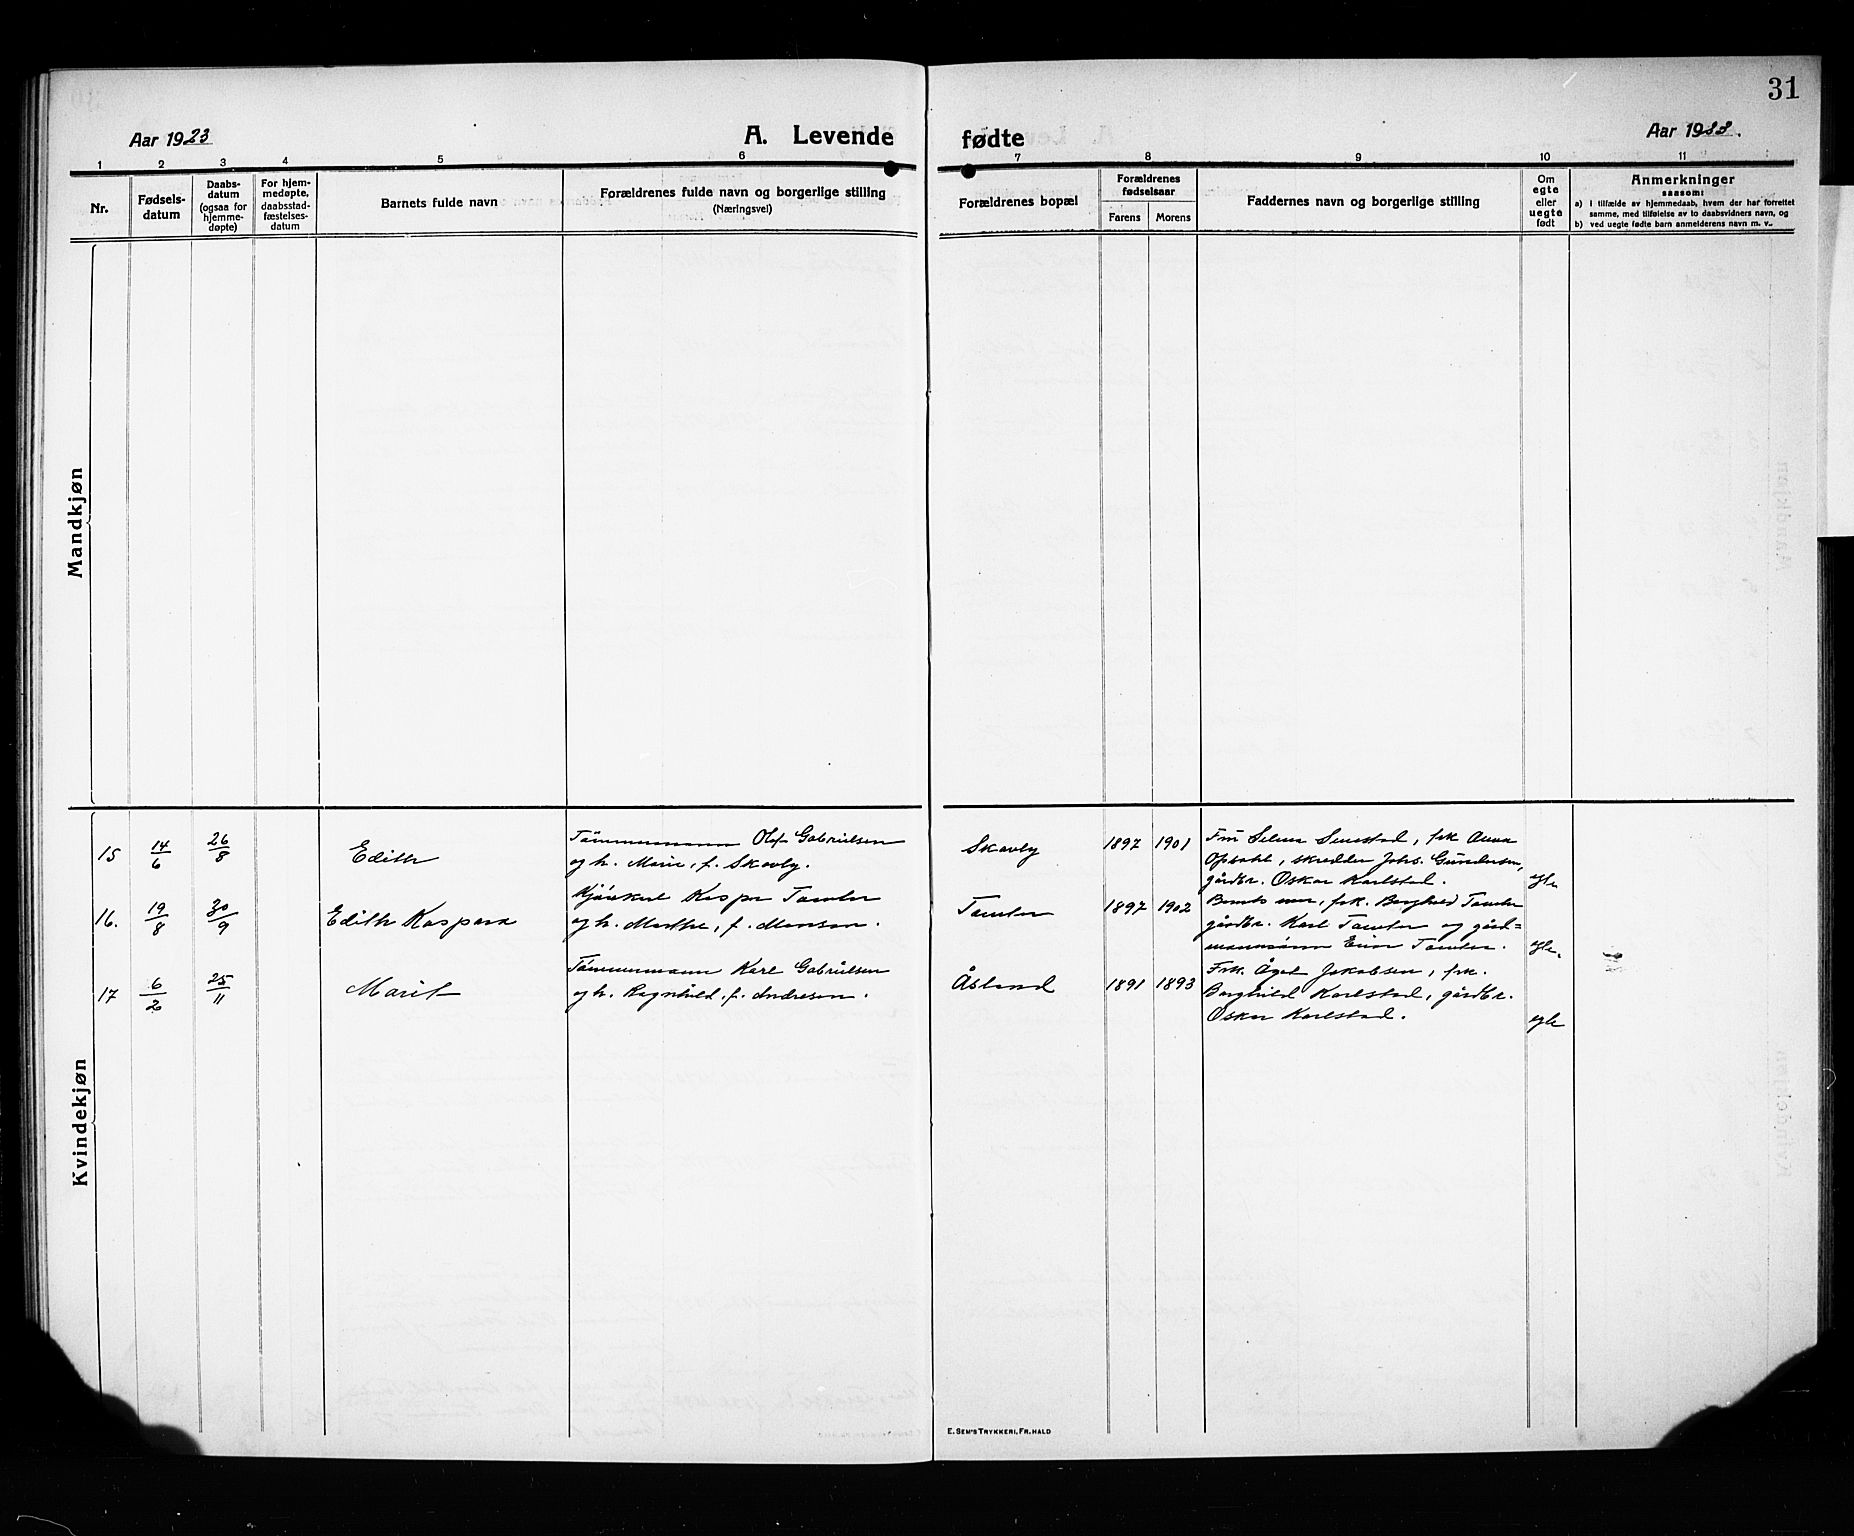 31
Aar 1923
A. Levende
fødte
Aar 1923.
1 2 3 4 5 6 7 8 9 10 11
Nr.
Fødsels-
datum
Daabs-
datum
(ogsaa for
hjemme-
døpte)
For hjem-
medøpte,
daabsstad-
fæstelses-
datum
Barnets fulde navn
Forældrenes fulde navn og borgerlige stilling
(Næringsvei)
Forældrenes bopæl
Forældrenes
fødselsaar
Farens
Morens
Faddernes navn og borgerlige stilling
Om
egte
eller
uegte
født
Anmerkninger
saasom:
a) i tilfælde av hjemmedaab, hvem der har forrettet
samme, med tilføielse av to daabsvidners navn, og
b) ved uegte fødte barn anmelderens navn m. v.
Mandkjøn
Kvindekjøn
15 14/6 26/8 Edith
Tömmermann Olaf Gabrielsen
og h. Marie, f. Skavby.
Skavby 1897 1901
Fru Selma Semstad, frk Anna
Opsahl, skredder Johs. Gundersen,
gårdbr. Oskar Karlstad.
egte
16. 19/8 30/9 Edith Kaspara
Kaspar Tamter
og h. Marthe, f. Monsen.
Tamter 1897 1902
Barnets mor, frk. Borghild Tamter
gårdbr. Karl Tamter og gård=
mannssönn Einar Tamter.
egte.
17 6/2 25/11 Marit
Tömmermann Karl Gabrielsen
og h. Ragnhild f. Andresen.
Åsland 1891 1893
Frk. Ågot Jakobsen, frk.
Borghild Karlstad, gårdbr.
Oskar Karlstad.
egte
E. Sem's Trykkeri, Fr.hald